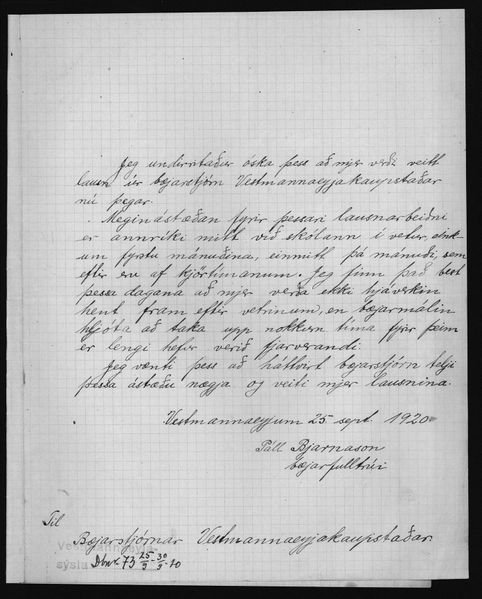 Jeg undirritaður óska þess að mjer verði veitt
lausn úr bæjarstjórn Vestmannaeyjakaupstaðar
nú þegar.
Meginástæðan fyrir þessari lausnarbeiðni
er annríki mitt við skólann í vetur, eink-
um fyrstu mánuðina, einmitt þá mánuði, sem
eftir eru af kjörtímanum. Jeg finn það best
þessa dagana að mjer verða ekki hjáverkin
hent fram eftir vetrinum, en bæjarmálin
hljóta að taka upp nokkurn tíma fyrir þeim
er lengi hefir verið fjarverandi.
Jeg vænti þess að háttvirt bæjarstjórn telji
þessa ástæðu nægja og veiti mjer lausnina.
Vestmannaeyjum 25 sept. 1920
Páll Bjarnason
bæjarfulltrúi
Til
Bæjarstjórnar Vestmannaeyjakaupstaðar
sýsla
Dbnr. 73 25/9 - 30/9 - 20